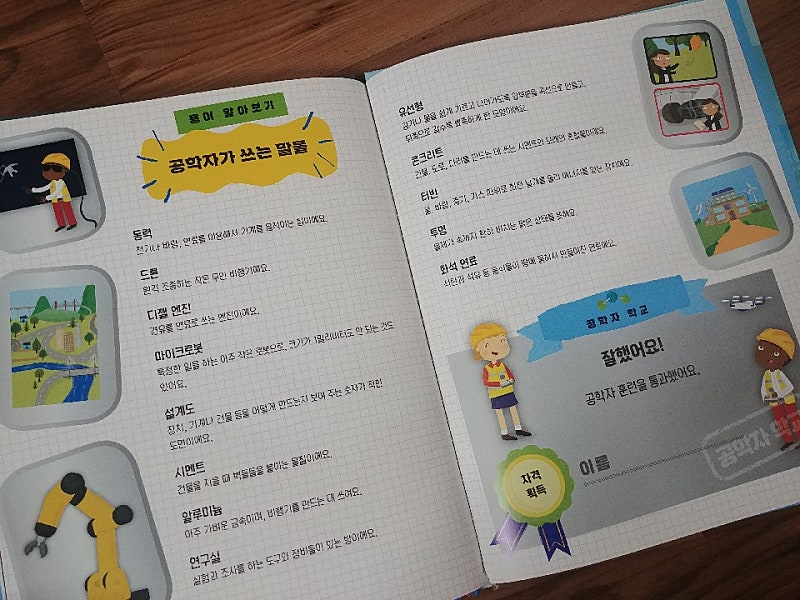 용어 알아보기
공학자가 쓰는 말들
동력
전기나 바람, 연료를 이용해서 기계를 움직이는 힘이에요.
드론
원격 조종하는 작은 무인 비행기예요.
디젤 엔진
경유를 연료로 쓰는 엔진이에요.
마이크로봇
특정한 일을 하는 아주 작은 로봇으로, 크기가 1밀리미터도 안 되는 것도
있어요.
설계도
장치, 기계나 건물 등을 어떻게 만드는지 보여 주는 숫자가 적힌
도면이에요.
시멘트
건물을 지을 때 벽돌들을 붙이는 물질이에요.
알루미늄
아주 가벼운 금속이며, 비행기를 만드는 데 쓰여요.
연구실
실험과 조사를 하는 도구와 장비들이 있는 방이에요.
유선형
공기나 물을 쉽게 가르고 나아가도록 앞부분을 곡선으로 만들고,
뒤쪽으로 갈수록 뾰족하게 한 모양이에요.
콘크리트
건물, 도로, 다리를 만드는 데 쓰는 시멘트와 모래의 혼합물이에요.
터빈
물, 바람, 증기, 가스 따위로 회전 날개를 돌려 에너지를 얻는 장치예요.
투명
물체가 속까지 환히 비치는 맑은 상태를 뜻해요.
화석 연료
석탄과 석유 등 동식물이 땅에 묻혀서 만들어진 연료예요.
공학자 학교
잘했어요!
공학자 훈련을 통과했어요.
이름
자격
획득
공학자 학교